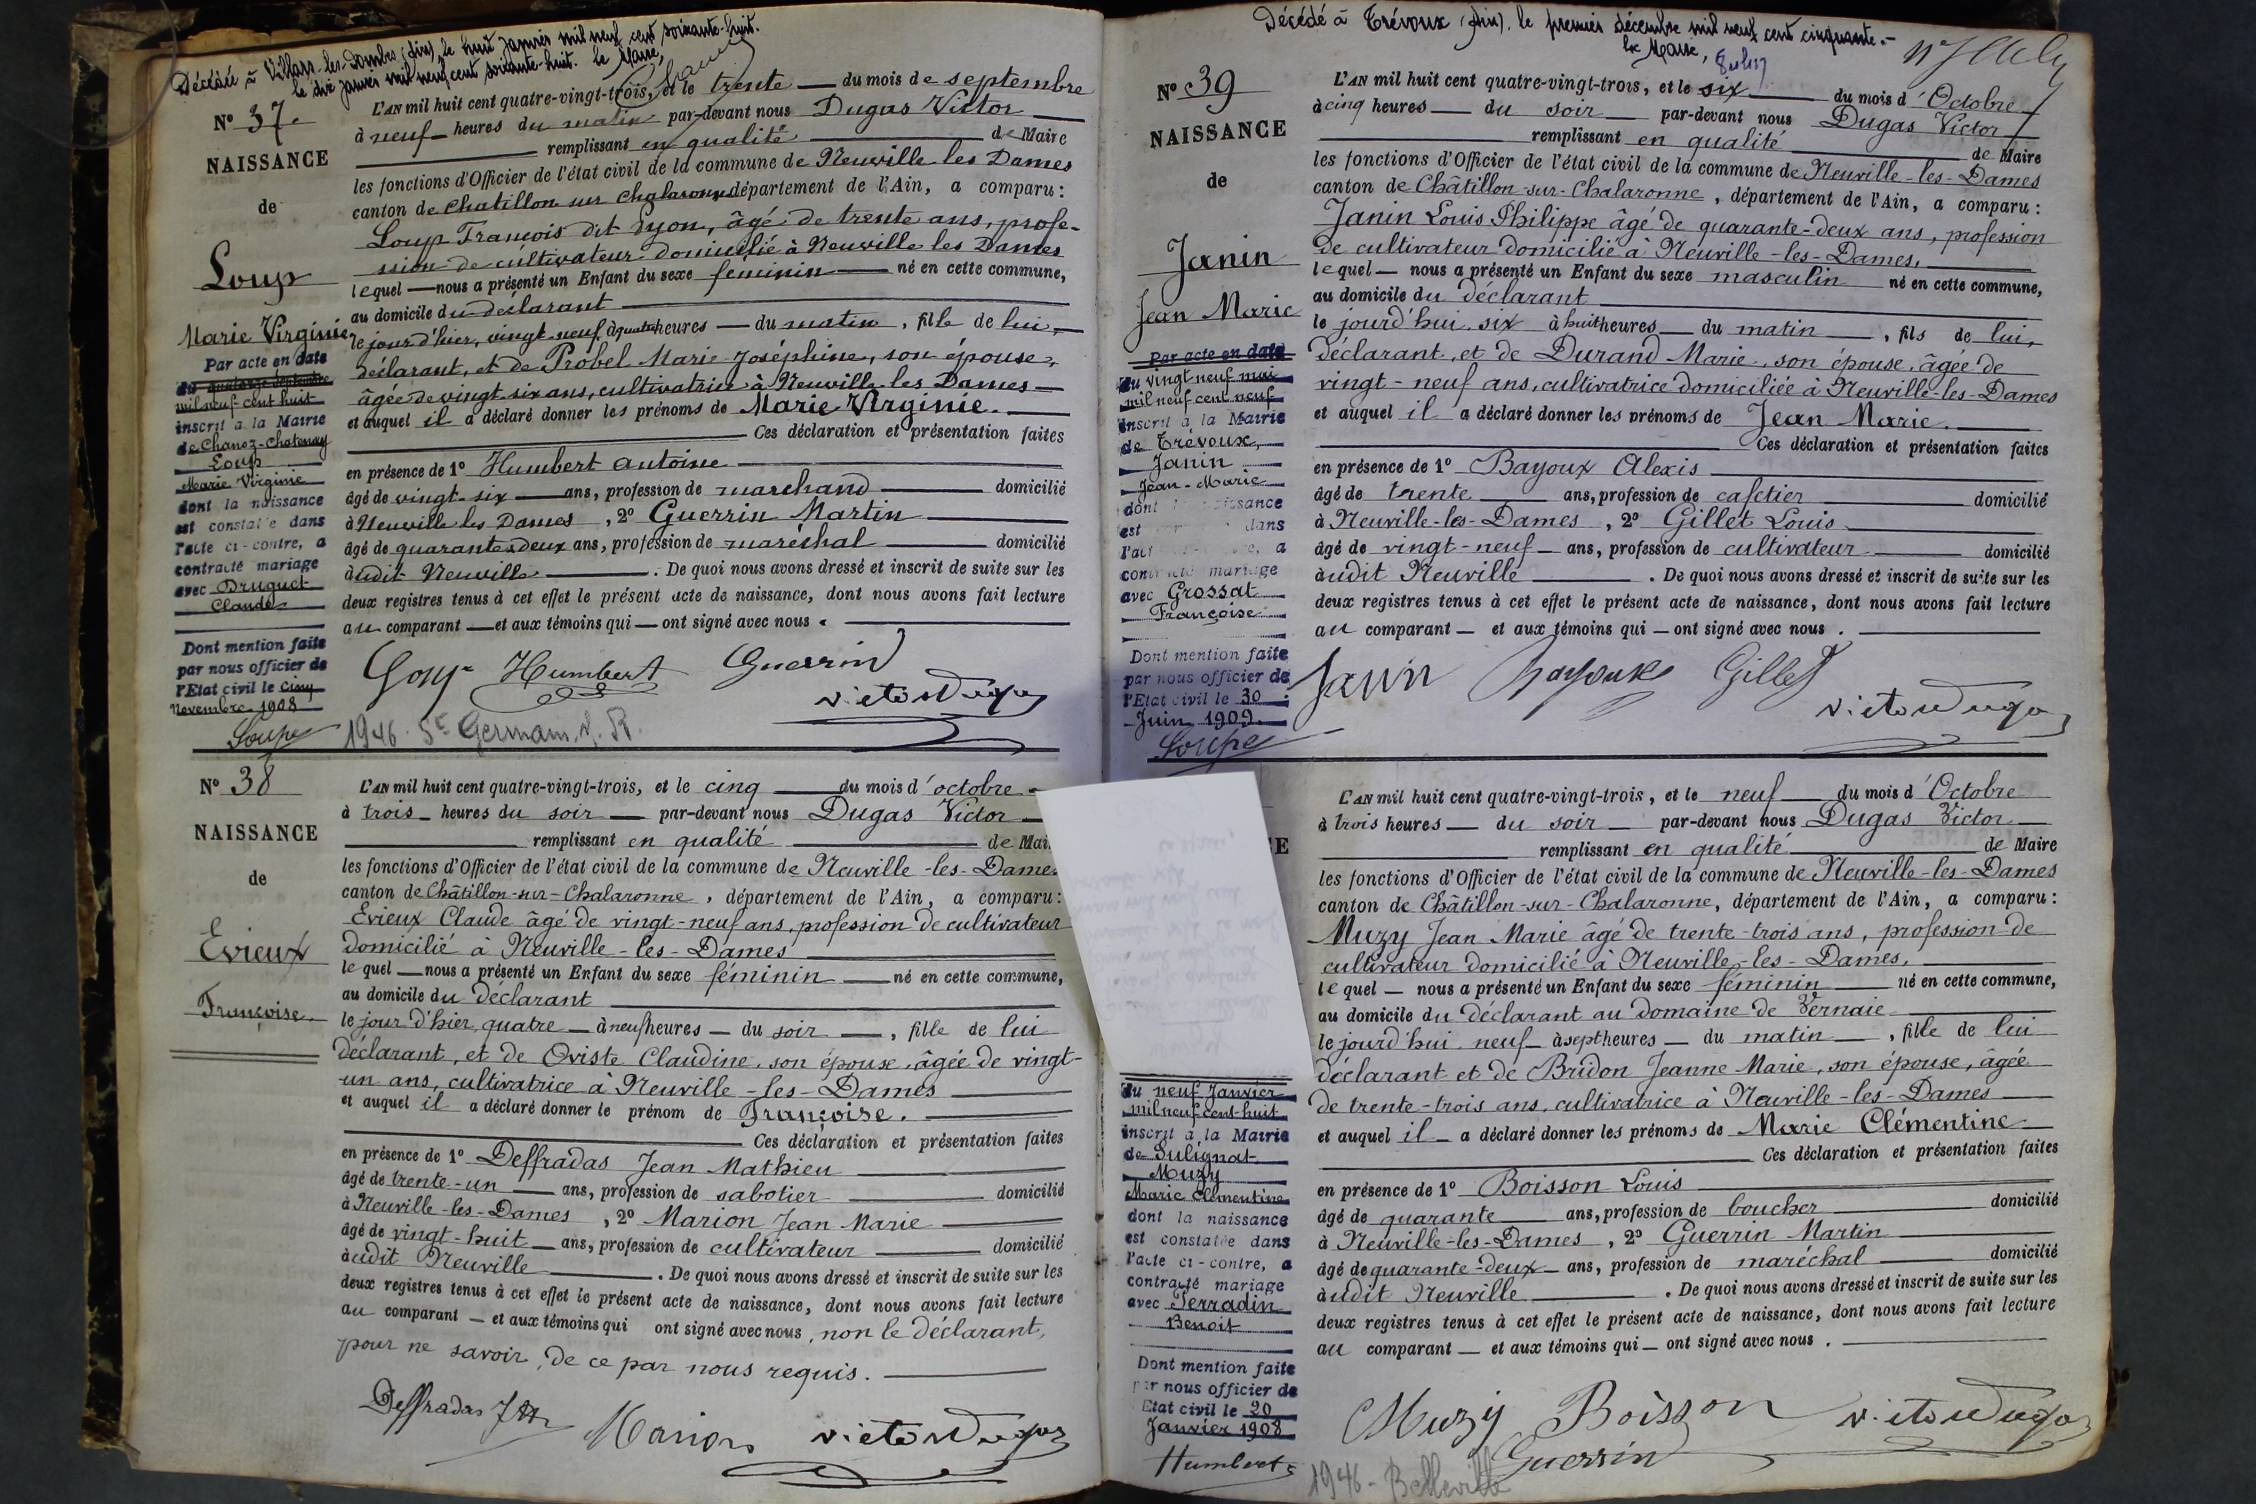 Décédée à Villars-les-Dombes (Ain), le huit janvier mil neuf cent soixante-huit.
le dix janvier mil neuf cent soixante-huit. Le Maire,
N° 37.
NAISSANCE
de
Loup
Marie Virginie
Par acte en date
du quatorze septembre
mil neuf cent huit
inscrit à la Mairie
de Chanoz-Chatenay
Loup
Marie Virginie
dont la naissance
est constatée dans
l'acte ci-contre, a
contracté mariage
avec Druguet
Claude
Dont mention faite
par nous officier de
l'Etat civil le cinq
Novembre 1908
Soupe
L'AN mil huit cent quatre-vingt-trois, et le trente du mois de septembre
à neuf heures du matin par-devant nous Dugas Victor
remplissant en qualité de Maire
les fonctions d'Officier de l'état civil de la commune de Neuville les Dames
canton de Chatillon sur Chalaronne département de l'Ain, a comparu :
Loup François dit Lyon, âgé de trente ans, profe-
ssion de cultivateur domicilié à Neuville les Dames
lequel nous a présenté un Enfant du sexe féminin né en cette commune,
au domicile du déclarant
le jour d'hier, vingt-neuf à quatre heures du matin, fille de lui,
déclarant, et de Probel Marie Joséphine, son épouse,
âgée de vingt-six ans, cultivatrice à Neuville les Dames
et auquel il a déclaré donner les prénoms de Marie Virginie.
Ces déclaration et présentation faites
en présence de 1° Humbert Antoine
âgé de vingt-six ans, profession de marchand domicilié
à Neuville les Dames, 2° Guerrin Martin
âgé de quarante-deux ans, profession de maréchal domicilié
àudit Neuville. De quoi nous avons dressé et inscrit de suite sur les
deux registres tenus à cet effet le présent acte de naissance, dont nous avons fait lecture
au comparant et aux témoins qui ont signé avec nous.
Loup Humbert Guerrin
Victor Dugas
1946. St Germain. s. R.
N° 38
NAISSANCE
de
Evieux
Françoise.
L'AN mil huit cent quatre-vingt-trois, et le cinq du mois d'octobre
à trois heures du soir par-devant nous Dugas Victor
remplissant en qualité de Mai
les fonctions d'Officier de l'état civil de la commune de Neuville-les-Dames
canton de Châtillon-sur-Chalaronne, département de l'Ain, a comparu :
Evieux Claude âgé de vingt-neuf ans, profession de cultivateur
domicilié à Neuville-les-Dames
lequel nous a présenté un Enfant du sexe féminin né en cette commune,
au domicile du déclarant
le jour d'hier, quatre à neuf heures du soir, fille de lui
déclarant, et de Oviste Claudine, son épouse, âgée de vingt-
un ans, cultivatrice à Neuville-les-Dames
et auquel il a déclaré donner le prénom de Françoise.
Ces déclaration et présentation faites
en présence de 1° Deffradas Jean Mathieu
âgé de trente-un ans, profession de sabotier domicilié
à Neuville-les-Dames, 2° Marion Jean Marie
âgé de vingt-huit ans, profession de cultivateur domicilié
àudit Neuville. De quoi nous avons dressé et inscrit de suite sur les
deux registres tenus à cet effet le présent acte de naissance, dont nous avons fait lecture
au comparant et aux témoins qui ont signé avec nous, non le déclarant,
pour ne savoir, de ce par nous requis.
Deffradas JM Marion Victor Dugas
Décédé à Trévoux (Ain), le premier décembre mil neuf cent cinquante.-
Le Maire,
N° 39
NAISSANCE
de
Janin
Jean Marie
Par acte en date
du vingt neuf mai
mil neuf cent neuf
inscrit à la Mairie
de Trévoux,
Janin
Jean-Marie
dont la naissance
est dans
l'act a
contracté mariage
avec Grossat
Françoise
Dont mention faite
par nous officier de
l'Etat civil le 30
Juin 1909
Soupe
L'AN mil huit cent quatre-vingt-trois, et le six du mois d'Octobre
à cinq heures du soir par-devant nous Dugas Victor
remplissant en qualité de Maire
les fonctions d'Officier de l'état civil de la commune de Neuville-les-Dames
canton de Châtillon-sur-Chalaronne, département de l'Ain, a comparu :
Janin Louis Philippe âgé de quarante-deux ans, profession
de cultivateur domicilié à Neuville-les-Dames,
lequel nous a présenté un Enfant du sexe masculin né en cette commune,
au domicile du déclarant
le jourd'hui six à huit heures du matin, fils de lui,
déclarant, et de Durand Marie, son épouse, âgée de
vingt-neuf ans, cultivatrice domiciliée à Neuville-les-Dames
et auquel il a déclaré donner les prénoms de Jean Marie.
Ces déclaration et présentation faites
en présence de 1° Bayoux Alexis
âgé de trente ans, profession de cafetier domicilié
à Neuville-les-Dames, 2° Gillet Louis
âgé de vingt-neuf ans, profession de cultivateur domicilié
àudit Neuville. De quoi nous avons dressé et inscrit de suite sur les
deux registres tenus à cet effet le présent acte de naissance, dont nous avons fait lecture
au comparant et aux témoins qui ont signé avec nous.
Janin Bayoux Gillet
Victor Dugas
E
du neuf Janvier
mil neuf cent huit
inscrit à la Mairie
de Sulignat
Muzy
Marie Clémentine
dont la naissance
est constatée dans
l'acte ci-contre, a
contracté mariage
avec Perradin
Benoit
Dont mention faite
par nous officier de
Etat civil le 20
Janvier 1908
Humbert
L'AN mil huit cent quatre-vingt-trois, et le neuf du mois d'Octobre
à trois heures du soir par-devant nous Dugas Victor
remplissant en qualité de Maire
les fonctions d'Officier de l'état civil de la commune de Neuville-les-Dames
canton de Châtillon-sur-Chalaronne, département de l'Ain, a comparu :
Muzy Jean Marie âgé de trente-trois ans, profession de
cultivateur domicilié à Neuville-les-Dames,
lequel nous a présenté un Enfant du sexe féminin né en cette commune,
au domicile du déclarant au domaine de Vernaie
le jourd'hui neuf à sept heures du matin, fille de lui
déclarant et de Bridon Jeanne Marie, son épouse, âgée
de trente-trois ans, cultivatrice à Neuville-les-Dames
et auquel il a déclaré donner les prénoms de Marie Clémentine
Ces déclaration et présentation faites
en présence de 1° Boisson Louis
âgé de quarante ans, profession de boucher domicilié
à Neuville-les-Dames, 2° Guerrin Martin
âgé de quarante-deux ans, profession de maréchal domicilié
àudit Neuville. De quoi nous avons dressé et inscrit de suite sur les
deux registres tenus à cet effet le présent acte de naissance, dont nous avons fait lecture
au comparant et aux témoins qui ont signé avec nous.
Muzy Boisson Victor Dugas
Guerrin
1946 - Belleville